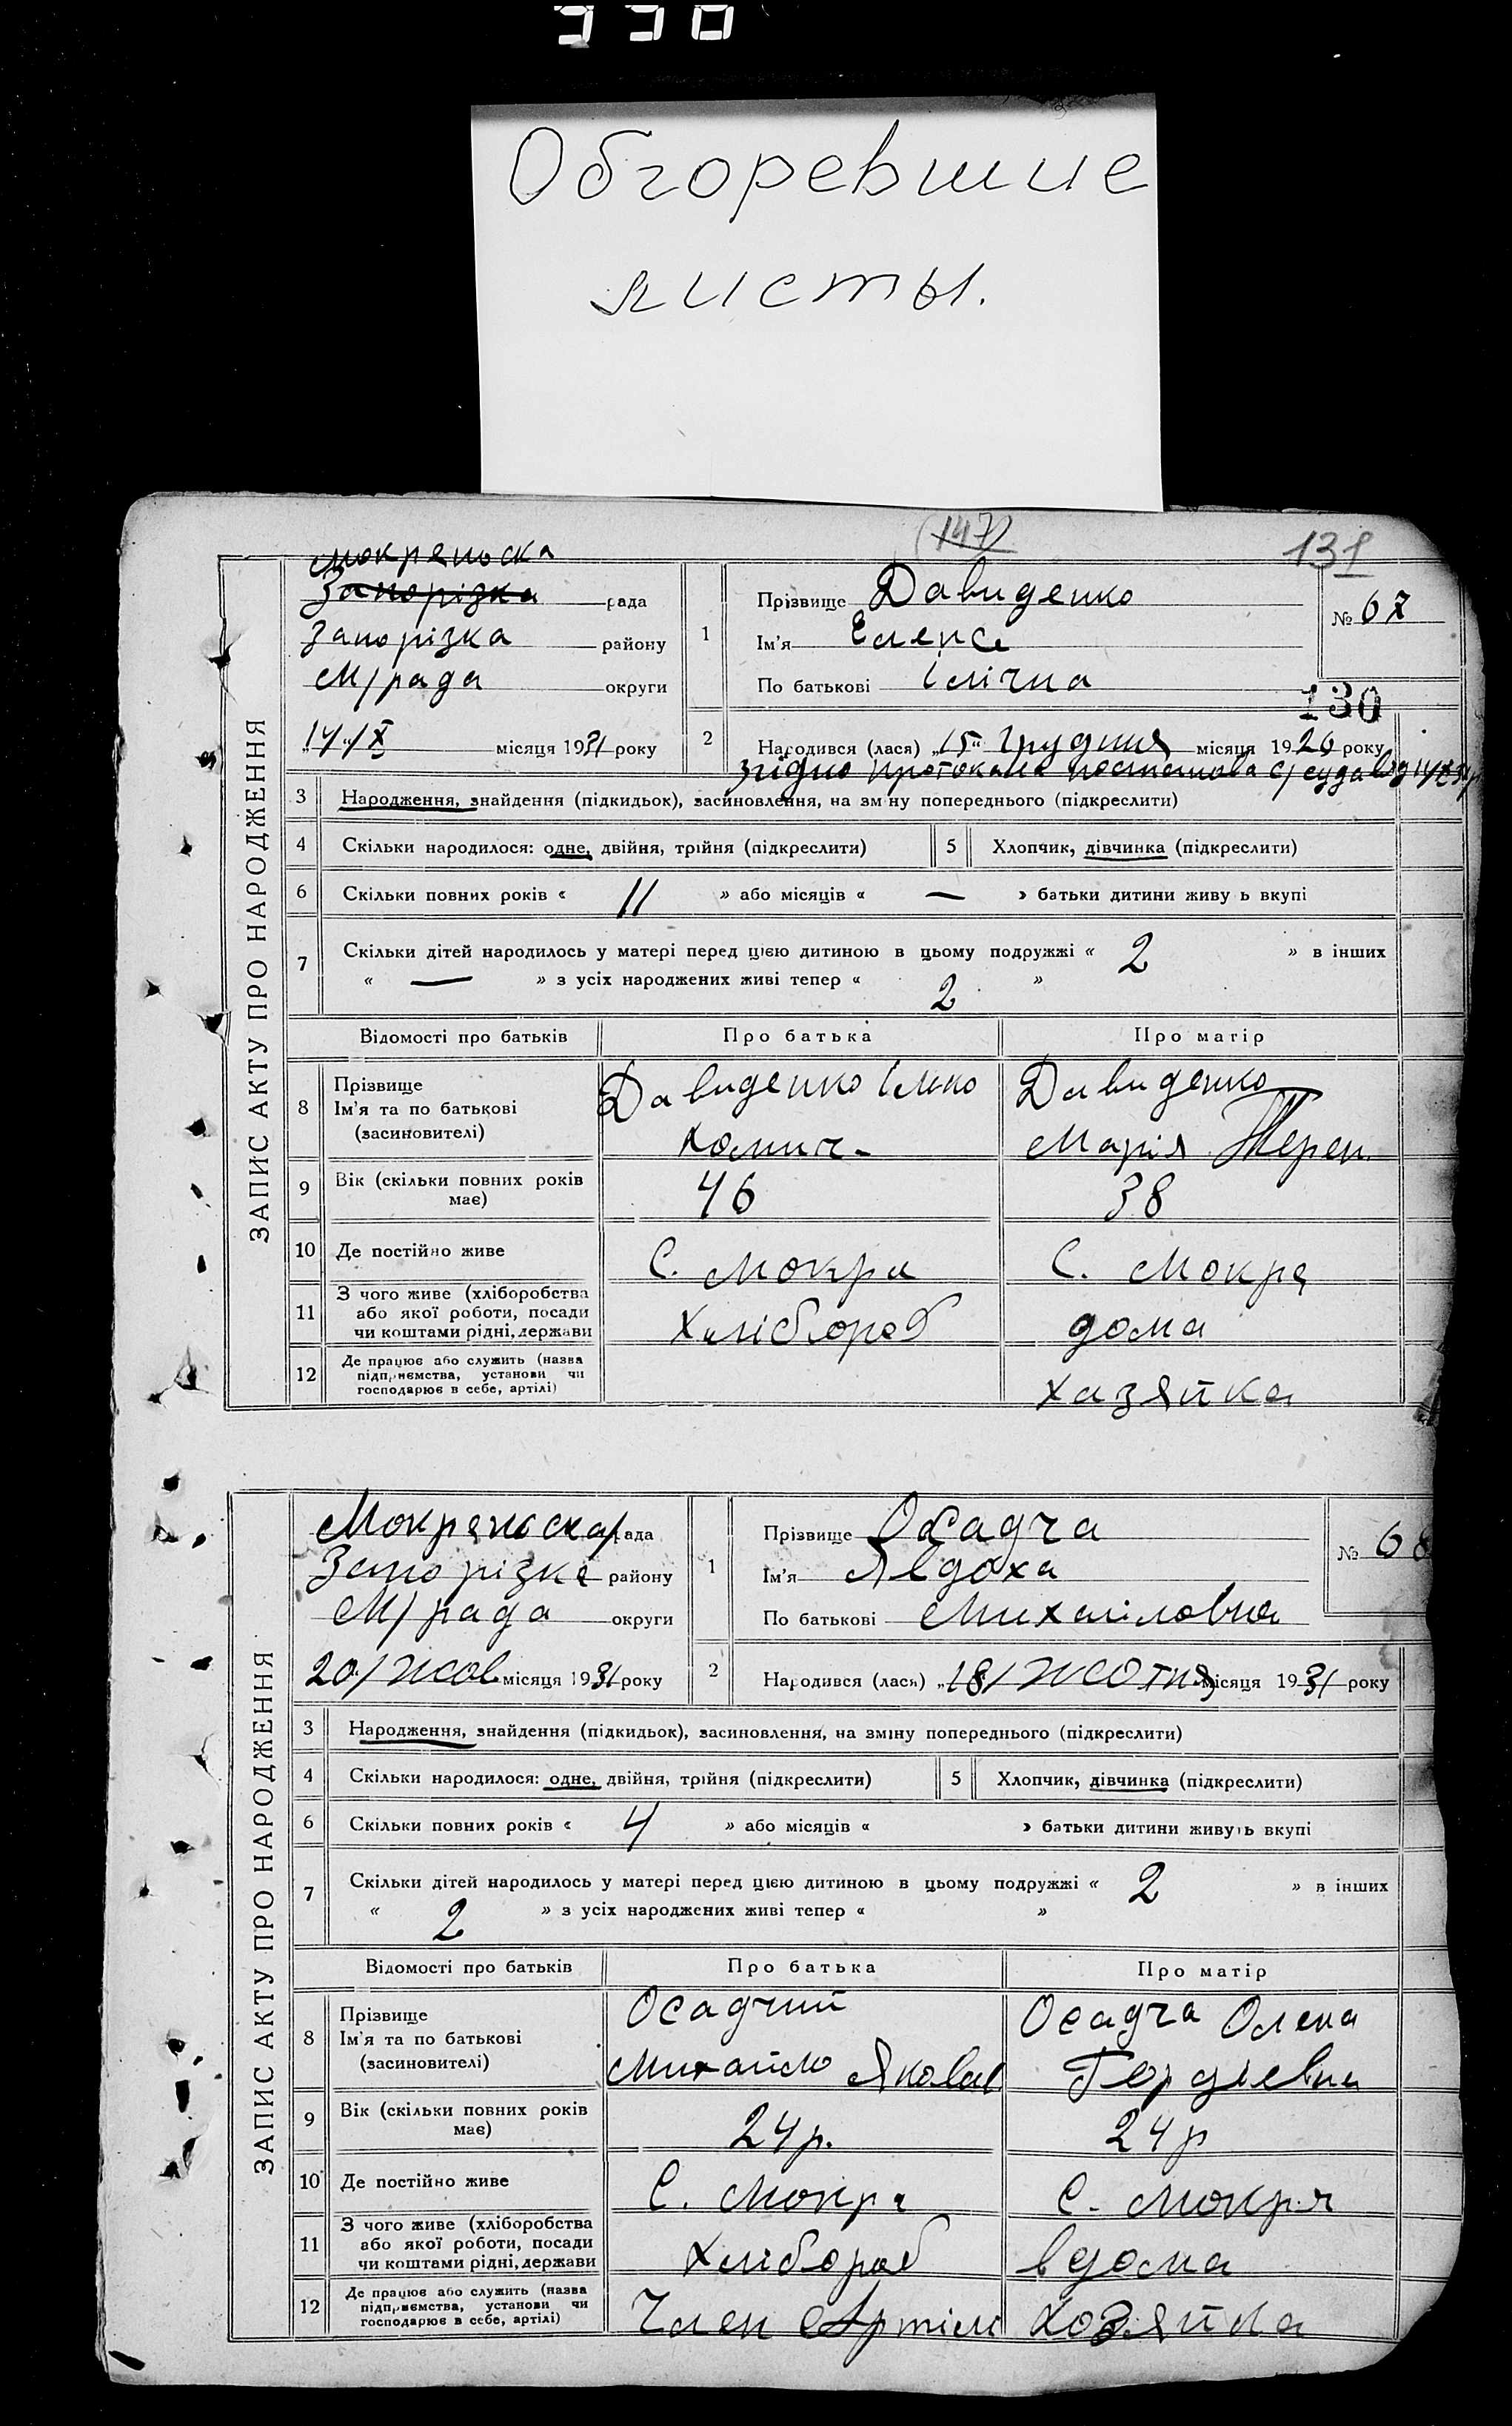 Обгоревшие
листы.
(147)
131
Мокрянська
Запорізка рада
Запорізка району
М/рада округи
14/X місяця 1931 року
1
Прізвище Давиденко
Ім'я Елена
По батькові Ілічна
№ 67
130
2
Народився (лася) „15" грудня місяця 1920 року
згідно протокала постанова с/суда від
ЗАПИС АКТУ ПРО НАРОДЖЕННЯ
3 Народження, знайдення (підкидьок), засиновлення, на зм ну попереднього (підкреслити)
4 Скільки народилося: одне, двійня, трійня (підкреслити) 5 Хлопчик, дівчинка (підкреслити)
6 Скільки повних років « 11 » або місяців « — » батьки дитини живу ь вкупі
7 Скільки дітей народилось у матері перед цією дитиною в цьому подружжі « 2 » в інших
« — » з усіх народжених живі тепер « 2 »
Відомості про батьків Про батька Про матір
8 Прізвище
Ім'я та по батькові
(засиновителі)
Давиденко Ілько
Хомич-
Давиденко
Марія Терен.
9 Вік (скільки повних років
має)
46 38
10 Де постійно живе С. Мокра С. Мокра
11 З чого живе (хліборобства
або якої роботи, посади
чи коштами рідні, держави
Хлібороб дома
12 Де працює або служить (назва
підприємства, установи чи
господарює в себе, артілі)
хазяйка
Мокрянська рада
Запорізка району
М/рада округи
20/жов місяця 1931 року
1
Прізвище Осадча
Ім'я Явдоха
По батькові Михаіловна
№ 68
2
Народився (лася) „18/ жотня місяця 1931 року
ЗАПИС АКТУ ПРО НАРОДЖЕННЯ
3 Народження, знайдення (підкидьок), засиновлення, на зміну попереднього (підкреслити)
4 Скільки народилося: одне, двійня, трійня (підкреслити) 5 Хлопчик, дівчинка (підкреслити)
6 Скільки повних років « 4 » або місяців « » батьки дитини живуть вкупі
7 Скільки дітей народилось у матері перед цією дитиною в цьому подружжі « 2 » в інших
« 2 » з усіх народжених живі тепер « »
Відомості про батьків Про батька Про матір
8 Прізвище
Ім'я та по батькові
(засиновителі)
Осадчий
Михайло Яковлев.
Осадча Олена
Гордіевна
9 Вік (скільки повних років
має)
24 р. 24 р
10 Де постійно живе С. Мокра С. Мокря
11 З чого живе (хліборобства
або якої роботи, посади
чи коштами рідні, держави
Хлібороб вдома
12 Де працює або служить (назва
підприємства, установи чи
господарює в себе, артілі)
Член Артілі хозяйка